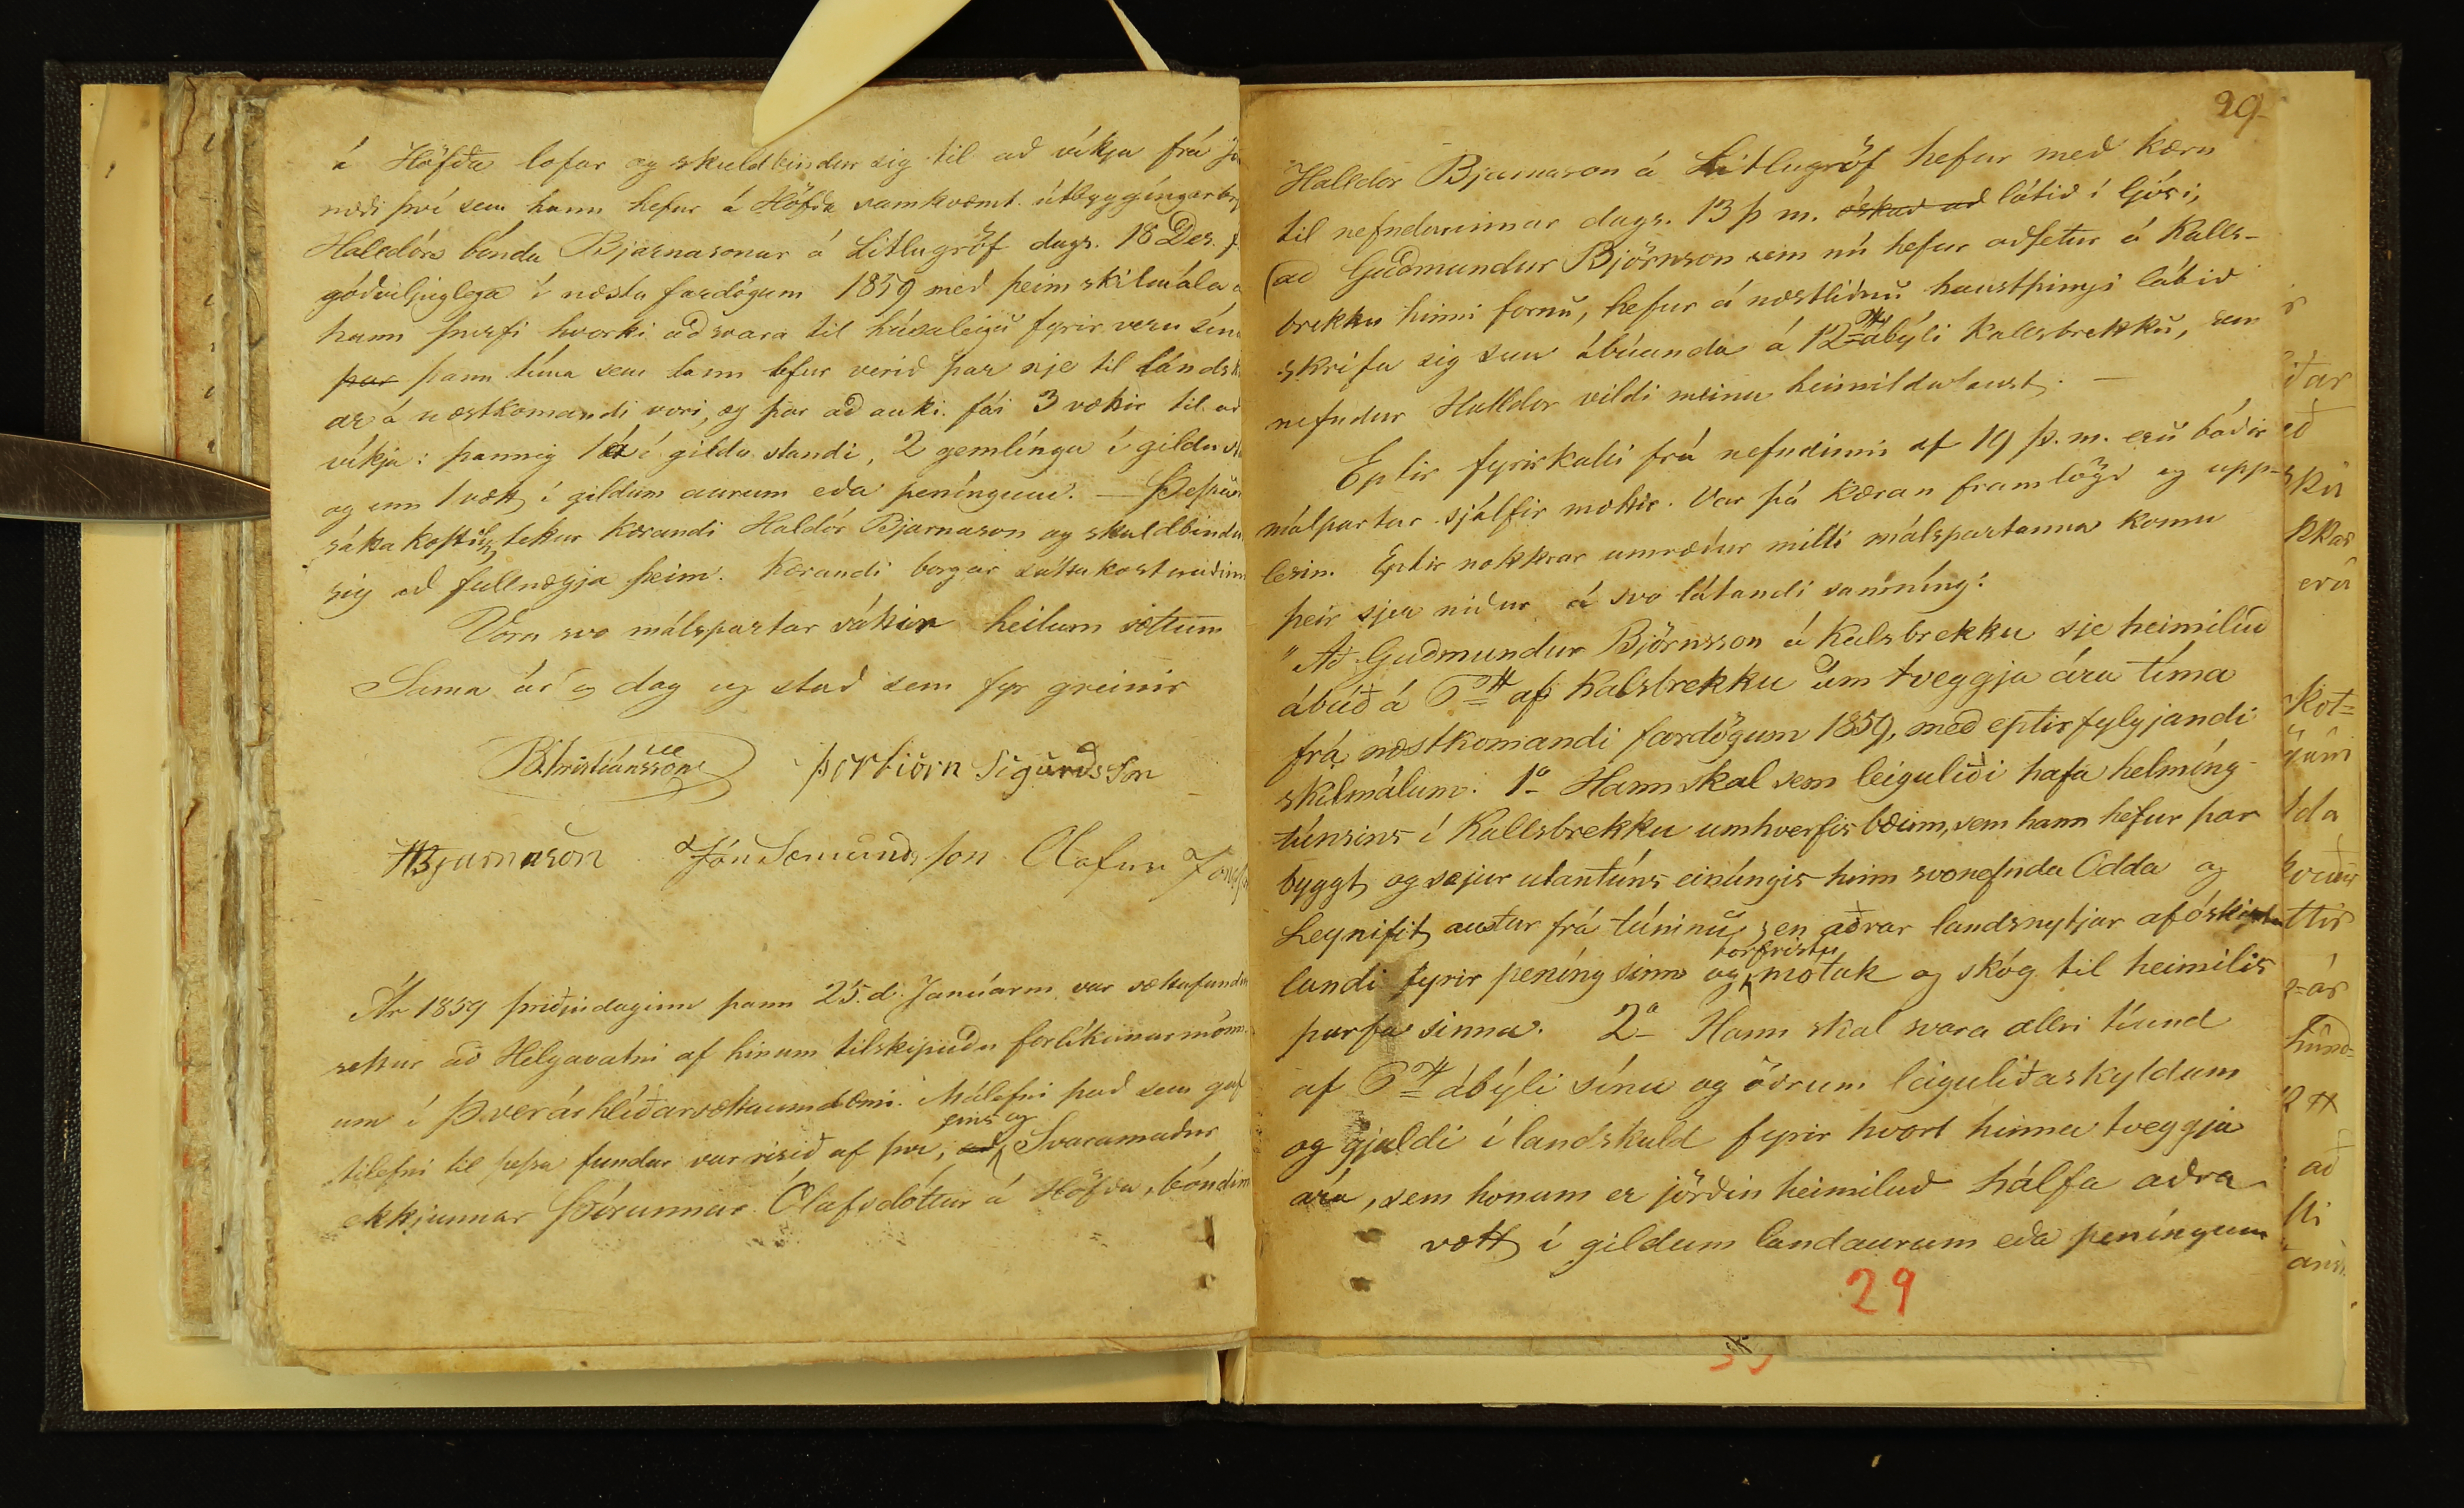 á Höfða lofar og skuldbindur sig til að víkja frá
næði því sem hann hefur á Höfða samkvæmt útbyggíngarbr
Haldórs bónda Bjarnasonar á Litlugröf dags. 18 Des.
góðviljuglega í næstu fardögum 1859 með þeim skilmála
hann þurfi hvorki að svara til húsaleigu fyrir veru sína
þar þann tíma sem hann hefur verið þar nje til landsk
ar á næstkomandi vori, og þar að auki fái 3 vættir til að
víkja: þannig 1 á í gildu standi, 2 gemlínga í gildu st
og enn 1 vætt í gildum aurum eða peníngum. — Þessum
sátta kostum tekur kærandi Haldór Bjarnason og skuldbindur
sig að fullnægja þeim. Kærandi borgar sáttakostnaðinn
Voru svo málspartar sáttir heilum sáttum
Sama ár og dag og stað sem fyr greinir
B. Kristiánsson Þorbiörn Sigurðsson
HBjarnason Jón Sæmundsson Olafur Jónsson
Ár 1859 þriðjudaginn þann 25. d. Janúarm. var sáttafundur
settur að Helgavatni af hinum tilskipuðu forlíkunarmönn
um í Þverárhlíðarsáttaumdæmi. Málefni það sem gaf
eins og
tilefni til þessa fundar var risið af því, að Svaramaður
ekkjunnar Þórunnar Ólafsdóttur á Höfða, bóndinn
29
Halldor Bjarnason á Litlugröf hefur með kæru
til nefndarinnar dags. 13 þ m. óskað að látið í ljósi,
að Guðmundur Björnson sem nú hefur aðsetur á Kalls-
brekku hinni fornu, hefur á næstliðnu haustþingi látið
skrifa sig sem ábúanda á 12 ábýli Kallsbrekku, sem
nefndur Halldor vildi meina heimildarlaust. —
Eptir fyrirkalli frá nefndinni af 19 þ. m. eru báðir
málpartar sjálfir mættir. Var þá kæran framlögð og upp-
lesin. Eptir nokkrar umræður milli málspartanna komu
þeir sjer niður á svo látandi samníng:
"Að Guðmundur Björnsson á Kalsbrekku sje heimiluð
ábúð á 6 af Kalsbrekku um tveggja ára tíma
frá næstkomandi fardögum 1859, með eptirfylgjandi
skilmálum. 1° Hann skal sem leiguliði hafa helmíng
túnsins í Kallsbrekku umhverfis bæinn, sem hann hefur þar
byggt, og sæjur utantúns einúngis hinn svonefnda Odda og
Leynifit, austur frá túninu, en aðrar landsnytjar af óskiptu
torfristu
landi fyrir peníng sinn og mótak og skóg til heimilis
þarfa sinna. 2° Hann skal svara allri tíund
af 6 ábýli sínu og öðrum leiguliðaskyldum
og gjaldi í landskuld fyrir hvort hinna tveggja
ára, sem honum er jörðin heimiluð hálfa aðra
vætt í gildum landaurum eða peníngum
29